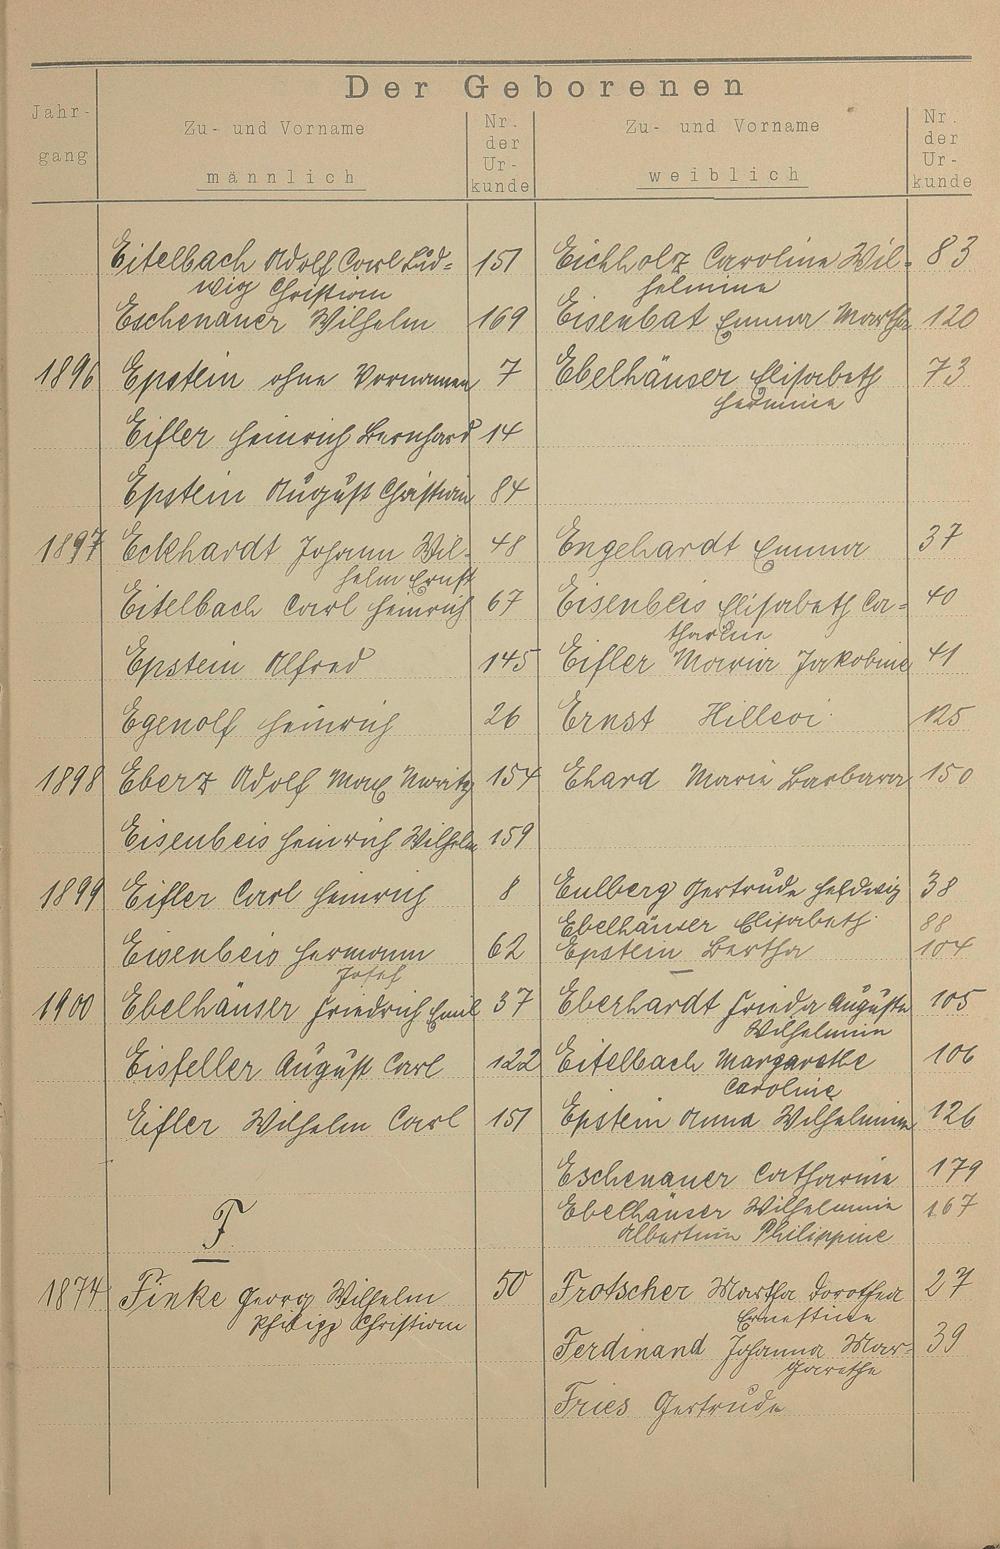 Der Geborenen
Jahr-
gang
Zu- und Vorname
männlich
Nr.
der
Ur-
kunde
Zu- und Vorname
weiblich
Nr.
der
Ur-
kunde
Eitelbach Adolf Carl Lud= 151 Eichholz Caroline Wil- 83
wig Christian helmine
Eschenauer Wilhelm 169 Eisenbat Emma Martha 120
1896 Epstein ohne Vornamen 7 Ebelhäuser Elisabeth 73
Hermine
Eifler Heinrich Bernhard 14
Epstein August Christian 84
1897 Eckhardt Johann Wil- 48 Engehardt Emma 37
helm Ernst
Eitelbach Carl Heinrich 67 Eisenbeis Elisabeth Ca= 40
tharine
Epstein Alfred 145 Eifler Maria Jakobine 41
Egenolf Heinrich 26 Ernst 125
1898 Eberz Adolf Max Moritz 154 Ehard Marie Barbara 150
Eisenbeis Heinrich Wilhelm 159
1899 Eifler Carl Heinrich 8 Eulberg Gertrude Hedwig 38
Ebelhäuser Elisabeth 88
Eisenbeis Hermann 62 Epstein Bertha 104
Josef
1900 Ebelhäuser Friedrich Emil 37 Eberhardt Frieda Auguste 105
Wilhelmine
Eisfeller August Carl 122 Eitelbach Margarethe 106
Caroline
Eifler Wilhelm Carl 151 Epstein Anna Wilhelmine 126
Eschenauer Catharine 179
Ebelhäuser Wilhelmine 167
Albertine Philippine
F
1874 Finke Georg Wilhelm 50 Frotscher Martha Dorothea 27
Philipp Christian Ernestine
Ferdinand Johanna Mar- 39
garethe
Fries Gertrude